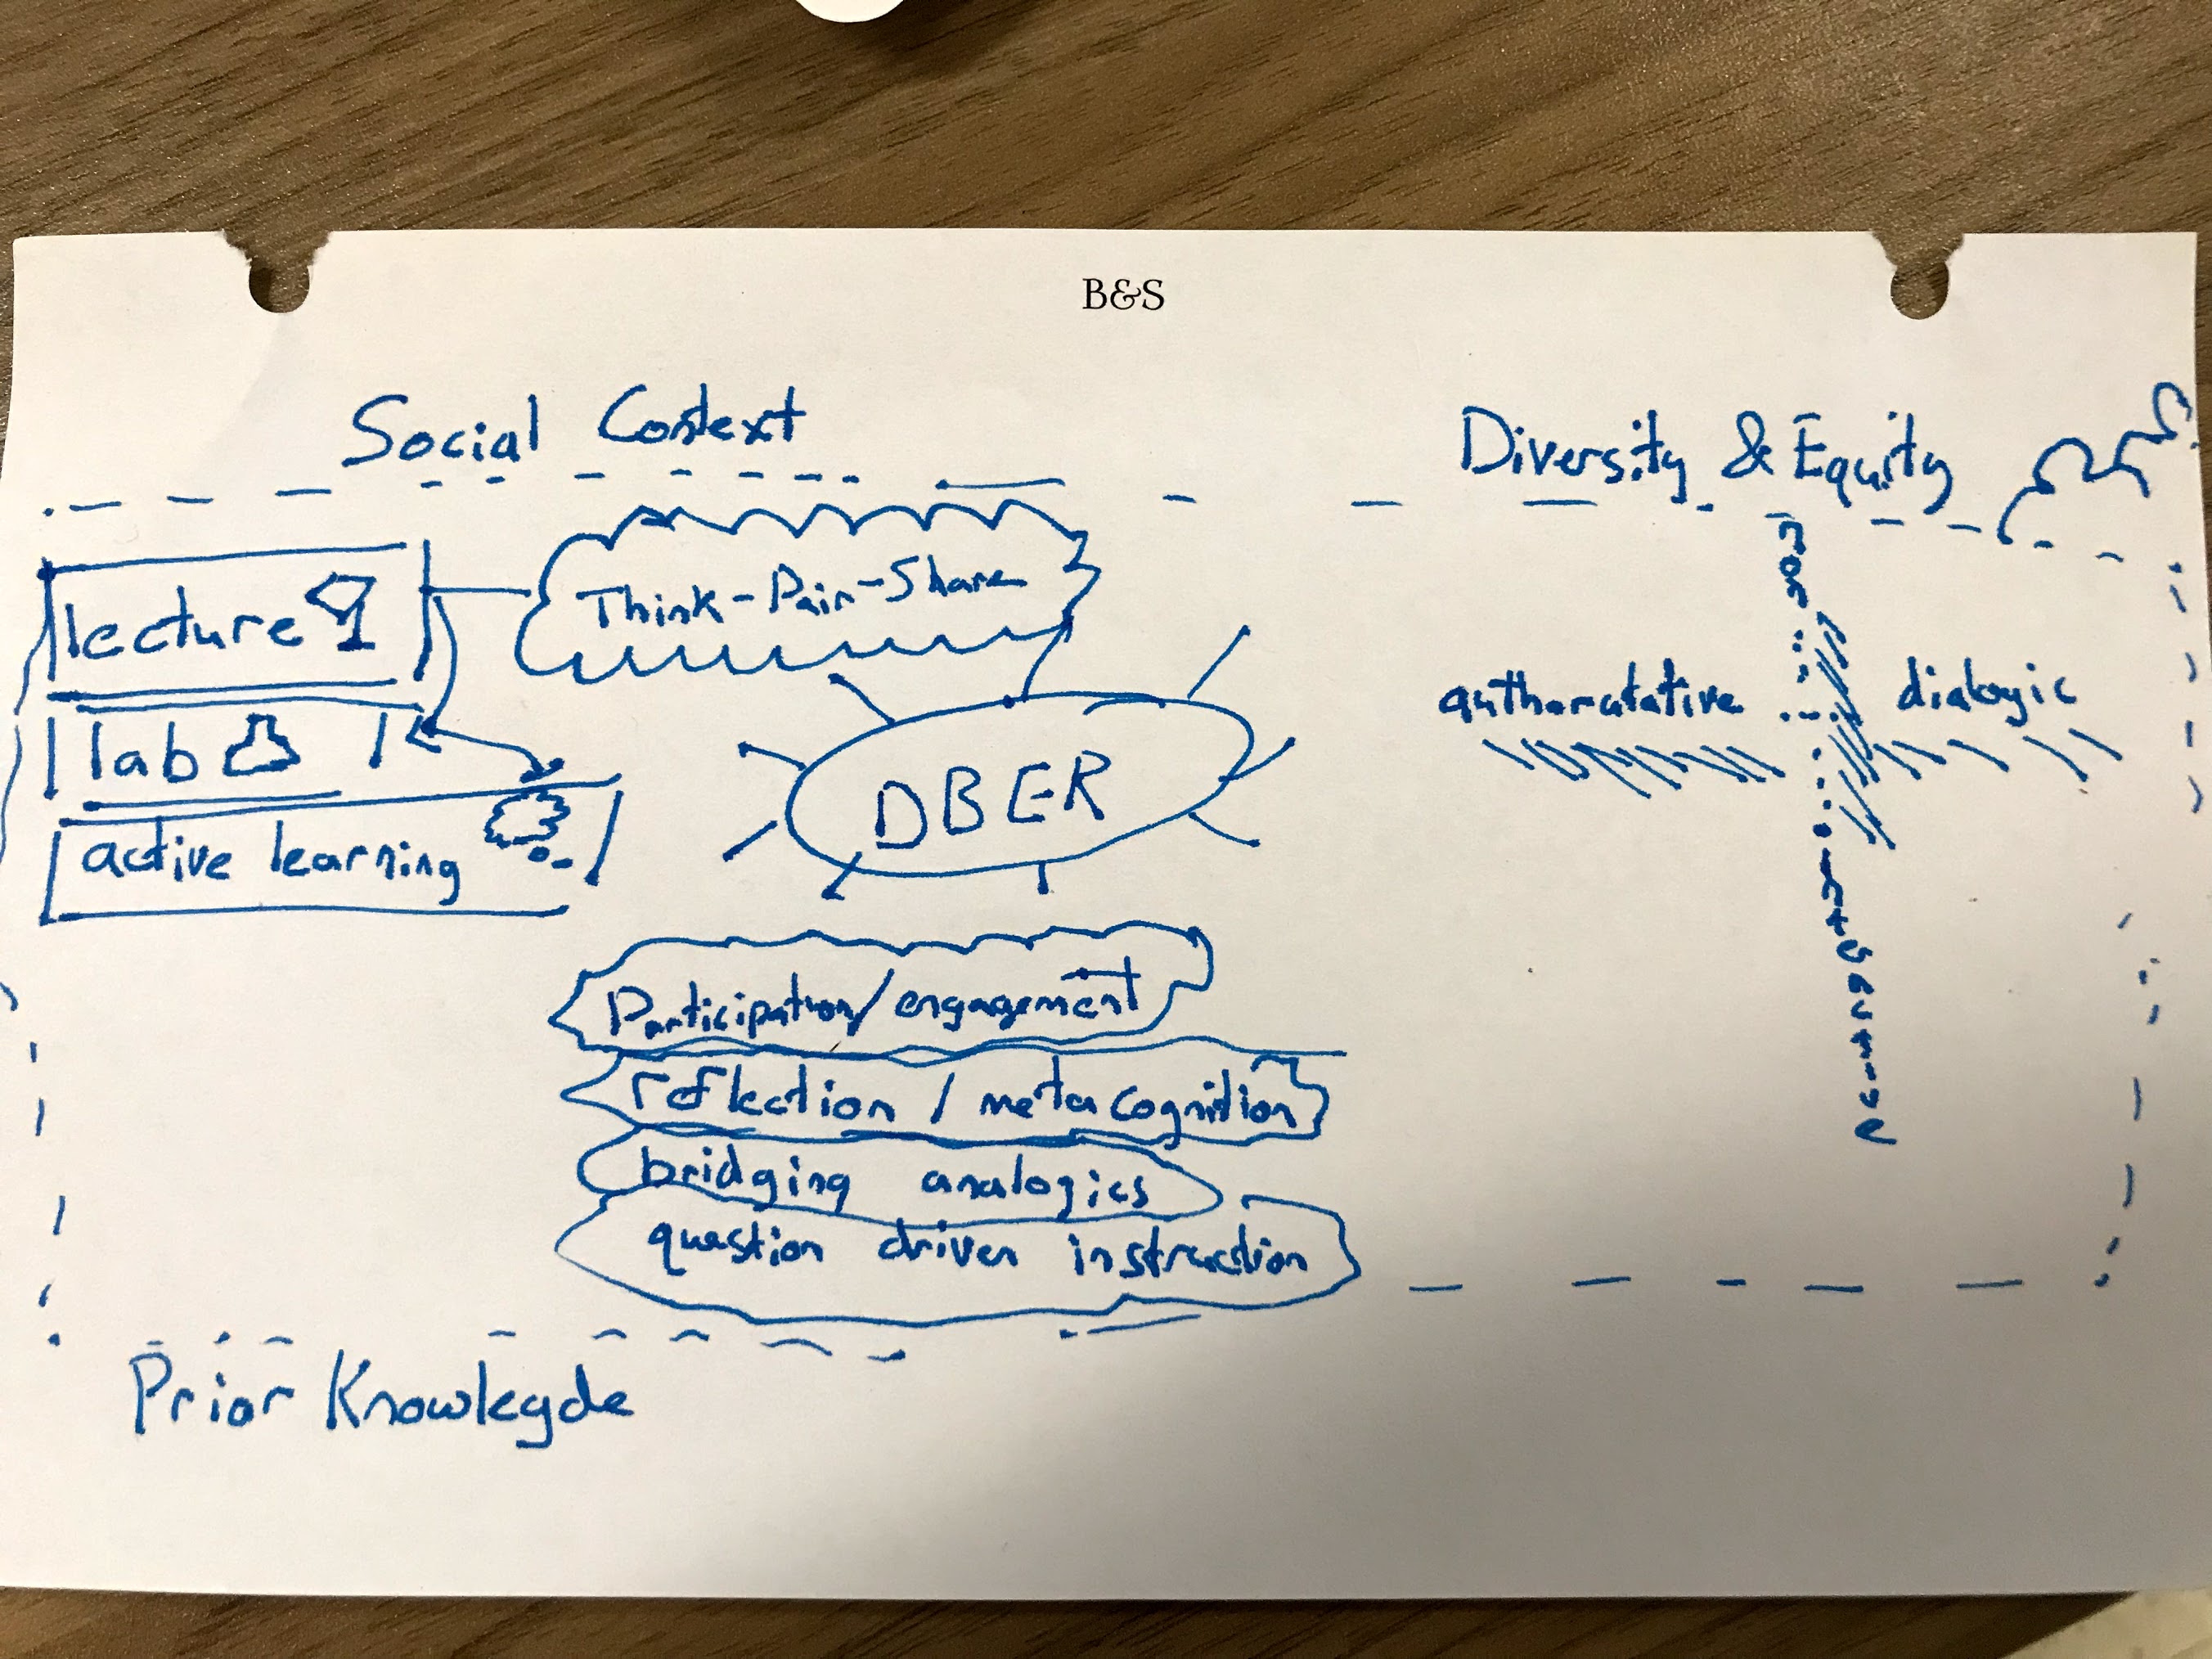 B&S
Social Context
Diversity & Equity
lecture
Think-Pair-Share
non
lab
DBER
authoratative
dialogic
active learning
interactive
Participation/engagement
reflection / metacognition
bridging analogies
question driven instruction
Prior Knowlegde